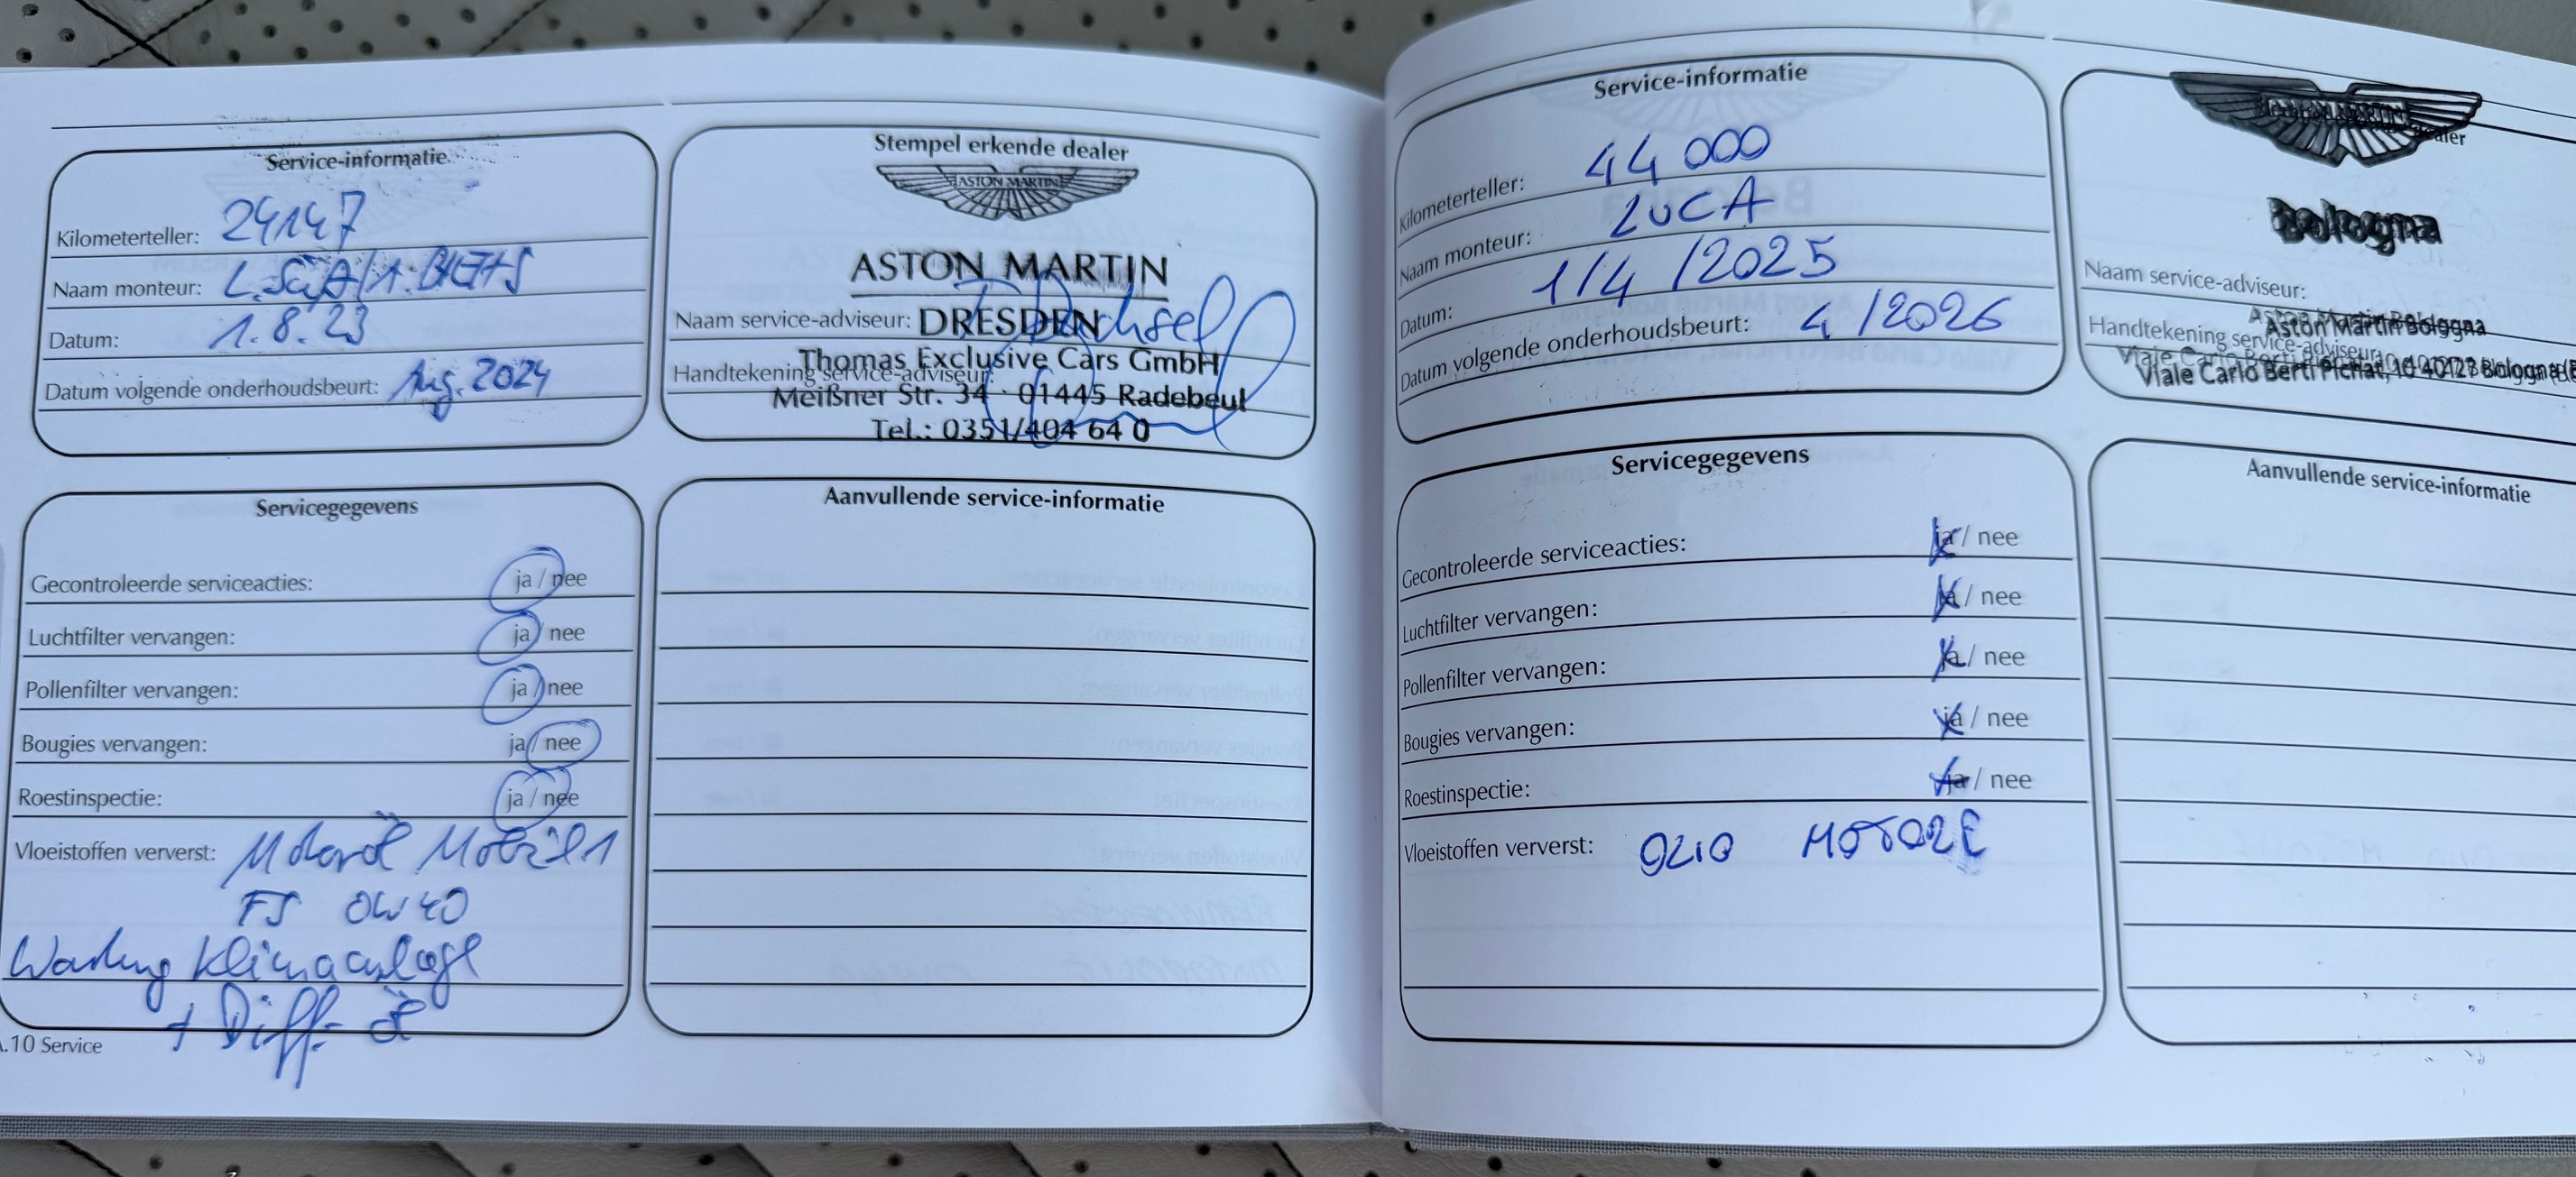 Service-informatie
Kilometerteller: 24147
Naam monteur:
Datum: 1.8.23
Datum volgende onderhoudsbeurt: Aug. 2024
Stempel erkende dealer
ASTON MARTIN
ASTON MARTIN
Naam service-adviseur: DRESDEN
Thomas Exclusive Cars GmbH
Handtekening service-adviseur:
Meißner Str. 34 · 01445 Radebeul
Tel.: 0351/404 64 0
Servicegegevens
Gecontroleerde serviceacties: ja / nee
Luchtfilter vervangen: ja / nee
Pollenfilter vervangen: ja / nee
Bougies vervangen: ja / nee
Roestinspectie: ja / nee
Vloeistoffen ververst: Motoröl Mobil 1
FS 0W40
Wartung Klimaanlage
+ Diff. Öl
Aanvullende service-informatie
.10 Service
Service-informatie
Kilometerteller: 44 000
Naam monteur: LUCA
Datum: 1/4/2025
Datum volgende onderhoudsbeurt: 4/2026
dealer
Bologna
Naam service-adviseur:
Aston Martin Bologna
Handtekening service-adviseur:
Viale Carlo Berti Pichat, 10 40127 Bologna
Servicegegevens
Gecontroleerde serviceacties: ja / nee
Luchtfilter vervangen: ja / nee
Pollenfilter vervangen: ja / nee
Bougies vervangen: ja / nee
Roestinspectie: ja / nee
Vloeistoffen ververst: OLIO MOTORE
Aanvullende service-informatie